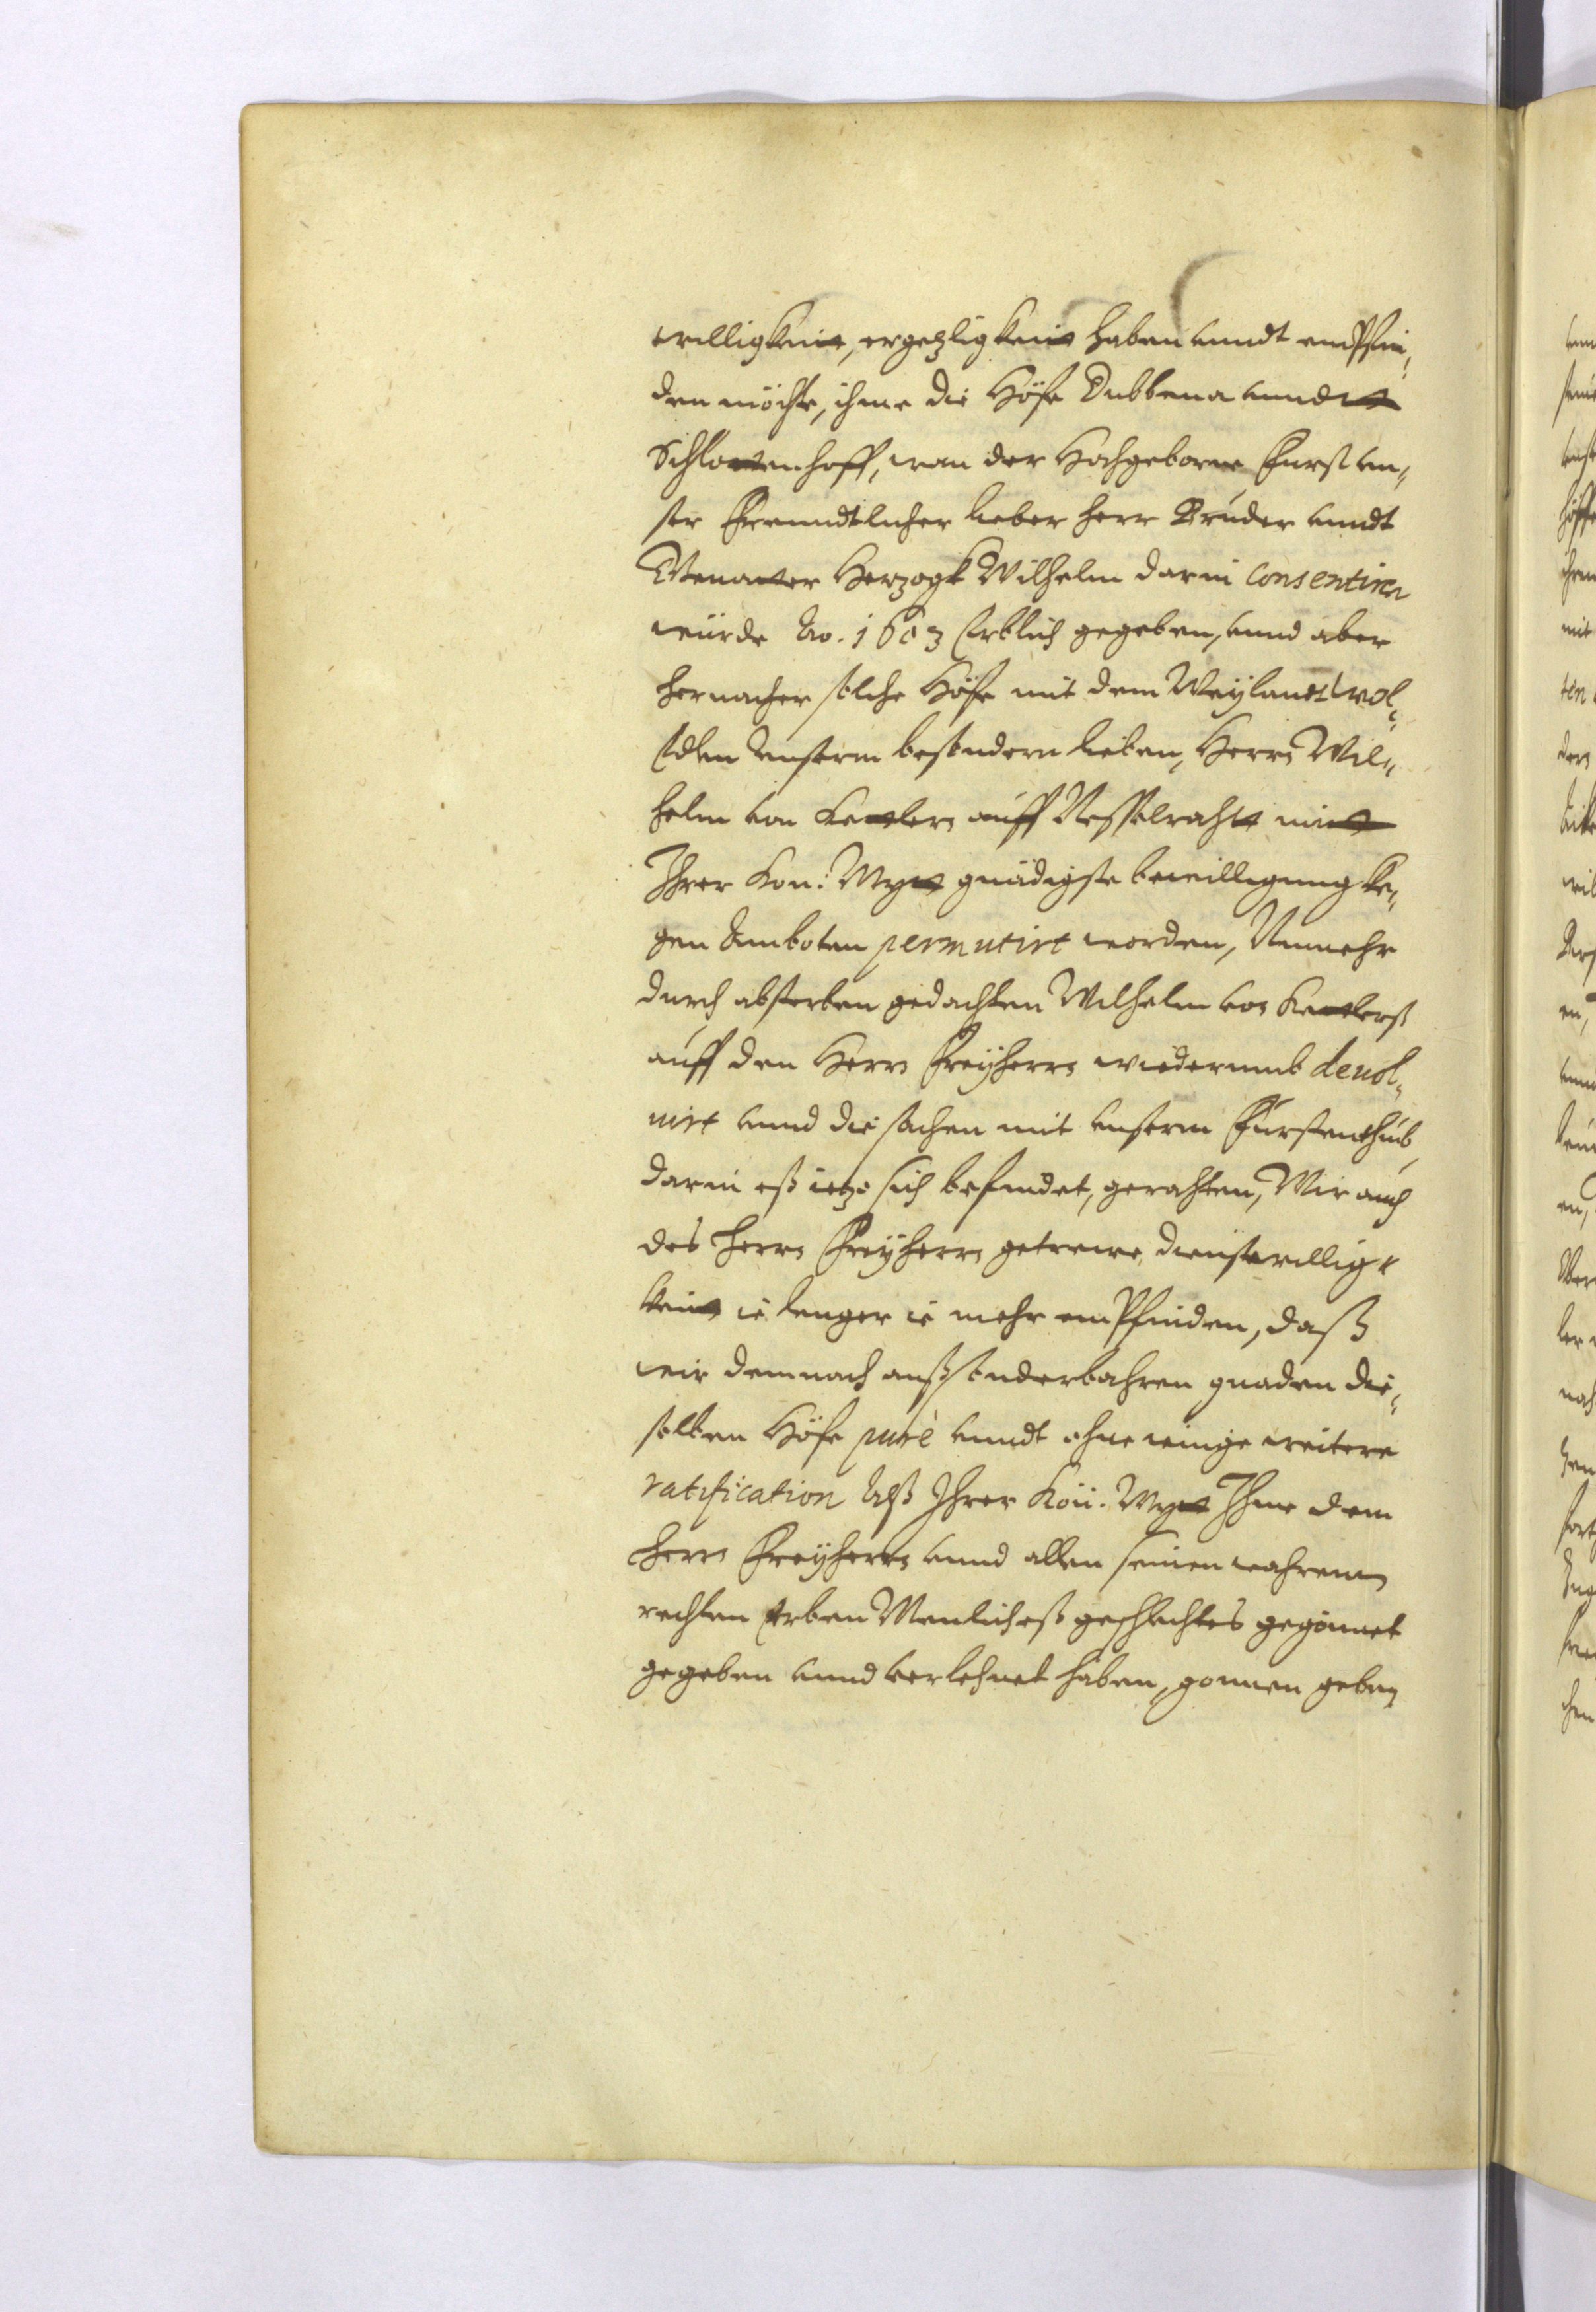 willigkeit, ergetzligkeit haben unndt empfin,
den möchte, ihme die Höfe Dubbena unndt
Schlottenhoff, wan der Hochgeborne Furst un„
ser Freundtlicher lieber Herr Bruder unndt
Gevatter Hertzogk Wilhelm darin consentiren
würde Ao. 1603 Erblich gegeben, unnd aber
hernacher solche Höfe mit dem Weylandt Wol„
Edlen Unserm besondern lieben, Herrn Wil„
helm von Kettlern auff Nesselraht mitt
Ihrer Kon: Maytt gnädigste bewilligung ke„
gen Amboten permutirt worden, Nunmehr
durch absterben gedachten Wilhelm von Kettlerß
auff den Herrn Freyherrn wiederumb devol„
virt unnd die sachen mit unserm Fürstenthub
darin eß ietzo sich befindet, gerahten, Wir auch
des Herrn Freyherrn getrewe dienstwillig„
keitt ie lenger ie mehr empfinden, daß
wir demnach auß sonderbahren gnaden die„
selben Höfe purè unndt ohne einige weitere
ratification Alß Ihrer Kön. Maytt Ihme dem
Herrn Freyherrn unnd allen seinen wahrenn
rechten Erben Menlicheß geschlechtes gegönnet
gegeben unnd verlehnet haben, gonnen geben